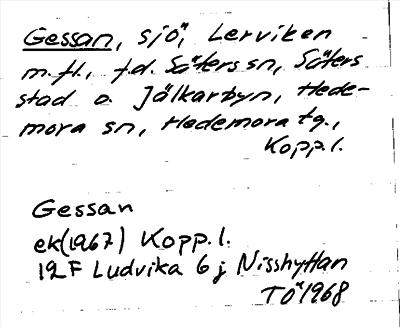 Gessan, sjö, Lerviken
m.fl., f.d. Säters sn, Säters
stad o. Jälkarbyn, Hede-
mora sn, Hedemora tg.,
Kopp.l.
Gessan
ek(1967) Kopp.l.
12F Ludvika 6j Nisshyttan
TÖ 1968